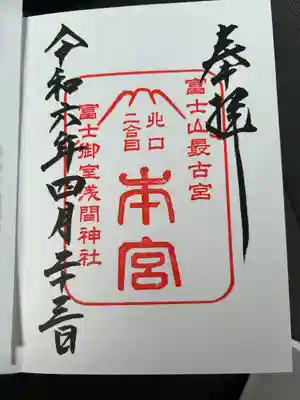 奉拝
富士山最古宮
北口
二合目
本宮
富士御室浅間神社
令和六年四月二十三日